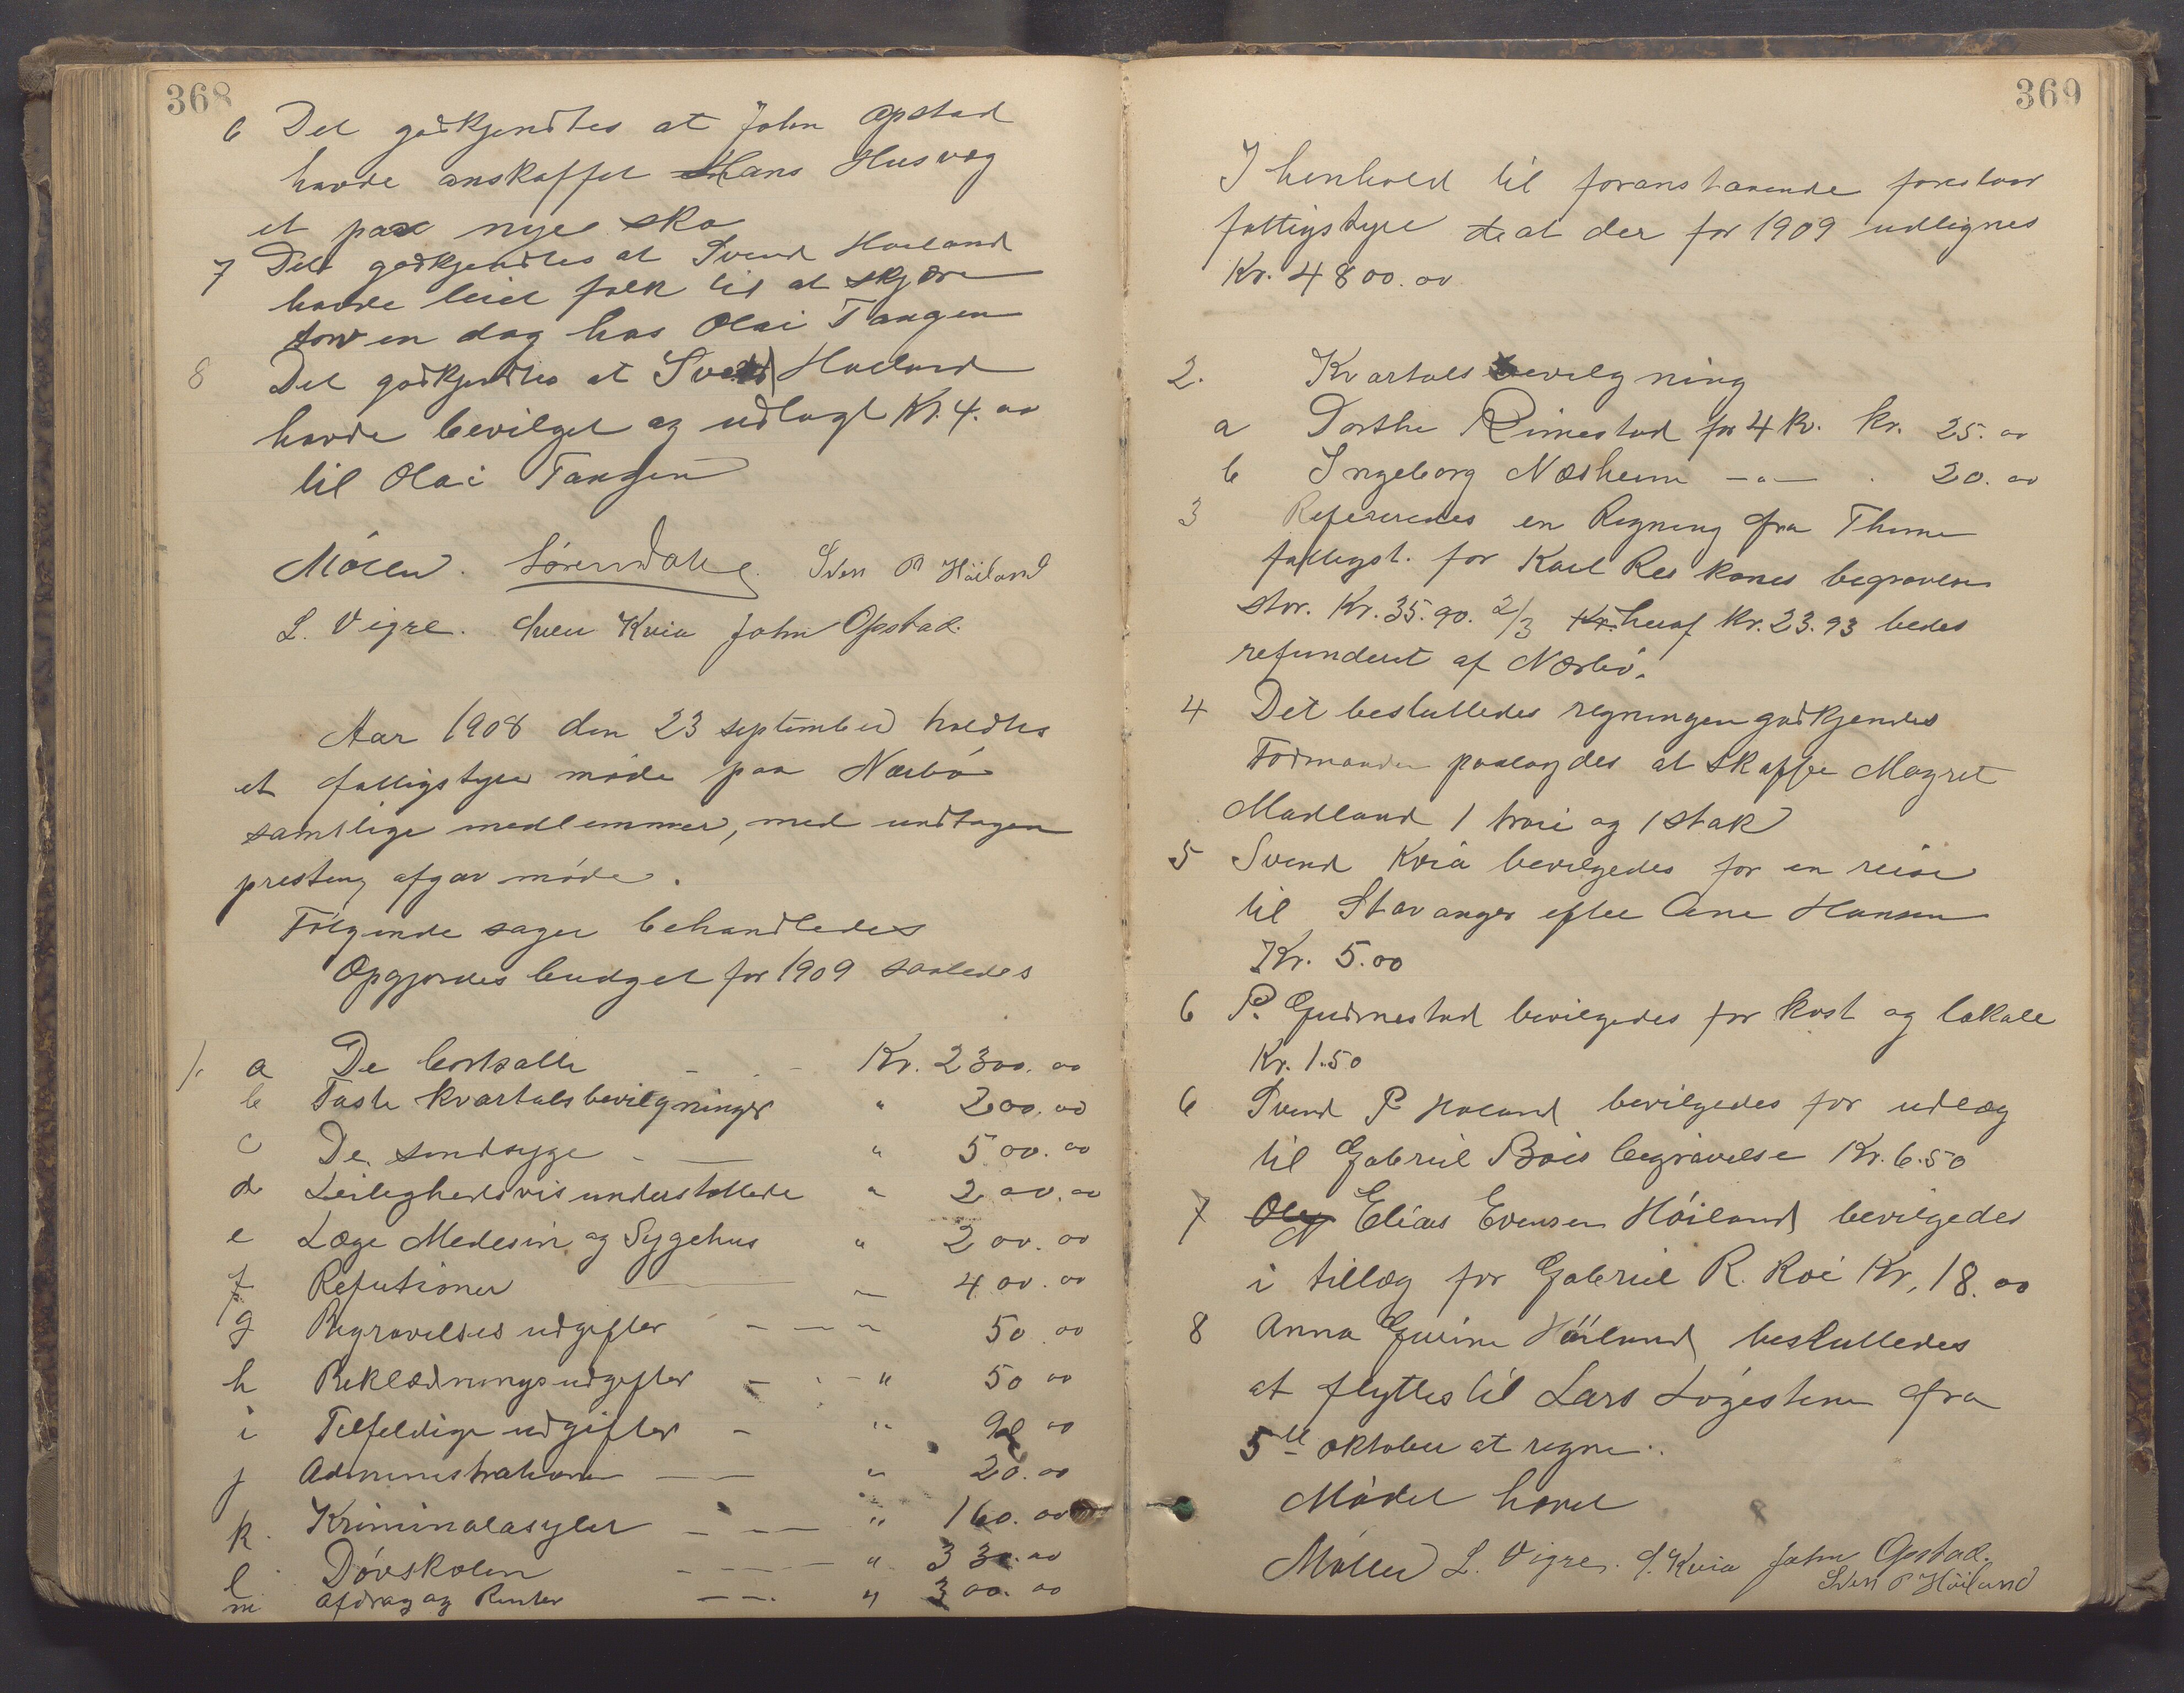 368
6 Det godkjendtes at John Opstad
havde anskaffet Hans Husvæg
et par nye sko
7 Det godkjendtes at Svend Høiland
havde leiet folk til at skjære
torv en dag hos Olai Tangen
8 Det godkjendtes at Svend Høiland
havde bevilget og udlagt Kr. 4.00
til Olai Tangen
Møller. Søren Dahle. Sven P Høiland
L. Vigre. Sven Kvia John Opstad.
Aar 1908 den 23 september holdtes
et fattigstyre møde paa Nærbø
samtlige medlemmer, med undtagen
presten, afgav møde.
Følgende sager behandledes
Opgjordes budget for 1909 saaledes
1. a De bortsatte - - - Kr. 2300.00
b Faste kvartalsbevilgninger " 200.00
c De sindsyge - — " 500.00
d Leilighedsvis understøttede " 200.00
e Læge Medesin og Sygehus " 200.00
f Refutioner — 400.00
g Begravelses udgifter - — — 50.00
h Beklædningsudgifter - - - " 50 00
i Tilfeldige udgifter - " 90 00
j Administration — — " 20.00
k. Kriminalasylet - — — " 160.00
l Døvskolen - — — " 330.00
m Afdrag og Renter — —. " 300.00
369
I henhold til foranstaaende foreslaar
fattigstyre at der for 1909 udlignes
Kr. 4800.00
2. Kvartalsbevilgning
a Dorthe Rimestad for 4 kv. kr. 25.00
b Ingeborg Næsheim — " — . 20.00
3 Refereredes en Regning fra Thime
fattigst. for Karl Res kones begravelse
stor. Kr. 35.90. 2/3 heraf Kr. 23.93 bedes
refunderet af Nærbø.
4 Det besluttedes regningen godkjendes
Formanden paalagdes at skaffe Magret
Madland 1 trøie og 1 stak
5 Svend Kvia bevilgedes for en reise
til Stavanger efter Ane Hansen
Kr. 5.00
6 P. Gudmestad bevilgedes for kost og lokale
Kr. 1.50
6 Svend P Høiland bevilgedes for udlæg
til Gabriel Rois begravelse Kr. 6.50
7 Elias Evensen Høiland bevilgedes
i tillæg for Gabriel R. Roi Kr. 18.00
8 Anna Gurine Høiland besluttedes
at flyttes til Lars Løgesten fra
5te oktober at regne.
Mødet hævet
Møller L. Vigre. S. Kvia John Opstad.
Sven P Høiland